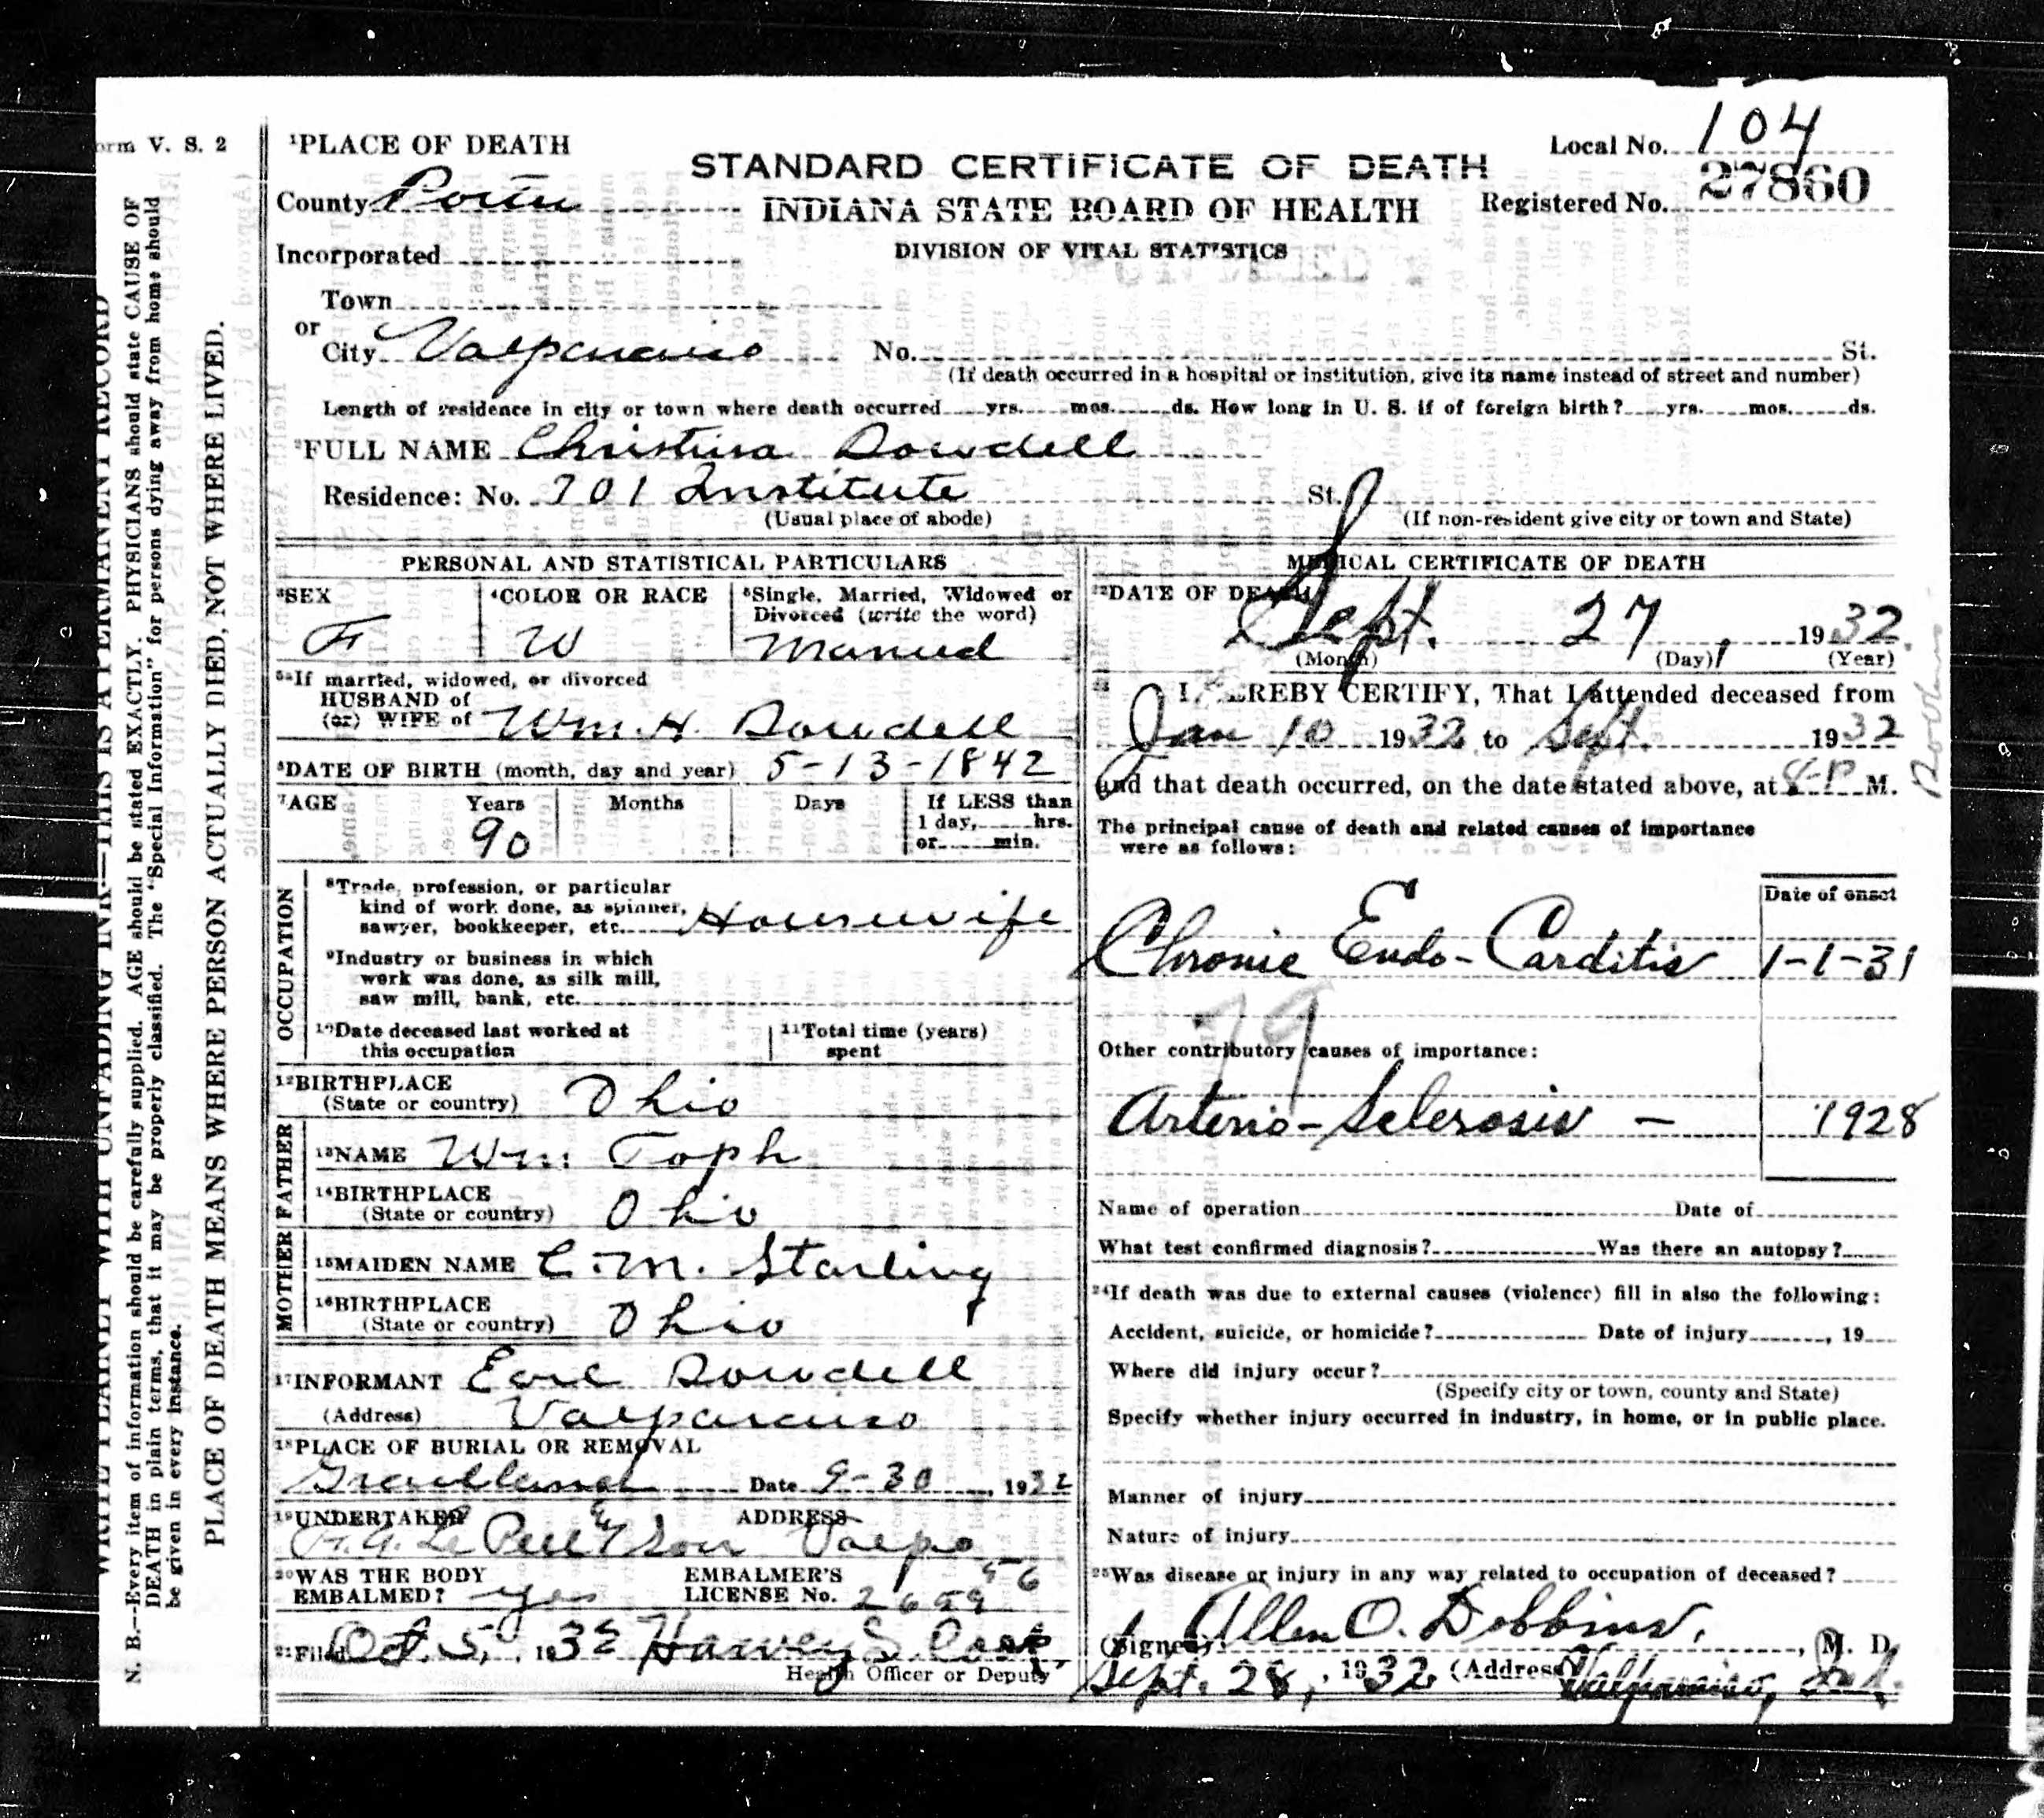 orm V. S. 2
WRITE PLAINLY WITH UNFADING INK—THIS IS A PERMANENT RECORD
N. B.—Every item of information should be carefully supplied. AGE should be stated EXACTLY. PHYSICIANS should state CAUSE OF
DEATH in plain terms, that it may be properly classified. The "Special Information" for persons dying away from home should
be given in every instance.
PLACE OF DEATH MEANS WHERE PERSON ACTUALLY DIED, NOT WHERE LIVED.
1PLACE OF DEATH
Local No. 104
STANDARD CERTIFICATE OF DEATH
County Porter
INDIANA STATE BOARD OF HEALTH
Registered No. 27860
Incorporated
DIVISION OF VITAL STATISTICS
Town
or
City Valparaiso No. St.
(If death occurred in a hospital or institution, give its name instead of street and number)
Length of residence in city or town where death occurred yrs. mos. ds. How long in U. S. if of foreign birth? yrs. mos. ds.
2FULL NAME Christina Dowdell
Residence: No. 701 Institute St.
(Usual place of abode) (If non-resident give city or town and State)
PERSONAL AND STATISTICAL PARTICULARS
3SEX F
4COLOR OR RACE W
5Single, Married, Widowed or
Divorced (write the word)
Married
5aIf married, widowed, or divorced
HUSBAND of
(or) WIFE of Wm. H. Dowdell
6DATE OF BIRTH (month, day and year) 5-13-1842
7AGE Years Months Days If LESS than
1 day, hrs.
or min.
90
OCCUPATION
8Trade, profession, or particular
kind of work done, as spinner,
sawyer, bookkeeper, etc. Housewife
9Industry or business in which
work was done, as silk mill,
saw mill, bank, etc.
10Date deceased last worked at
this occupation
11Total time (years)
spent
12BIRTHPLACE
(State or country) Ohio
FATHER
13NAME Wm. Toph
14BIRTHPLACE
(State or country) Ohio
MOTHER
15MAIDEN NAME C. M. Starling
16BIRTHPLACE
(State or country) Ohio
17INFORMANT Earl Dowdell
(Address) Valparaiso
18PLACE OF BURIAL OR REMOVAL
Graceland Date 9-30, 1932
19UNDERTAKER ADDRESS
Son Valpo
20WAS THE BODY
EMBALMED? yes
EMBALMER'S
LICENSE No. 2659
56
21Filed Oct. 5, 1932 Harvey S. Cook
Health Officer or Deputy
MEDICAL CERTIFICATE OF DEATH
22DATE OF DEATH
Sept. 27, 1932
(Month) (Day) (Year)
23 I HEREBY CERTIFY, That I attended deceased from
Jan 10 1932 to Sept. 1932
and that death occurred, on the date stated above, at 8-P M.
The principal cause of death and related causes of importance
were as follows:
Date of onset
Chronic Endo-Carditis 1-1-31
Other contributory causes of importance:
Arterio-Sclerosis — 1928
Name of operation Date of
What test confirmed diagnosis? Was there an autopsy?
24If death was due to external causes (violence) fill in also the following:
Accident, suicide, or homicide? Date of injury , 19
Where did injury occur?
(Specify city or town, county and State)
Specify whether injury occurred in industry, in home, or in public place.
Manner of injury
Nature of injury
25Was disease or injury in any way related to occupation of deceased?
(Signed) Allen O. Dobbins, M. D.
Sept. 28, 1932 (Address) Valparaiso, Ind.